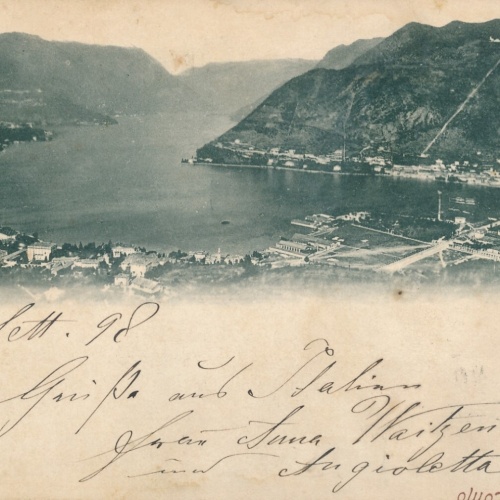 Sett. 98
Grüße aus Italien
Frau Anna Waitzen
und Angioletta